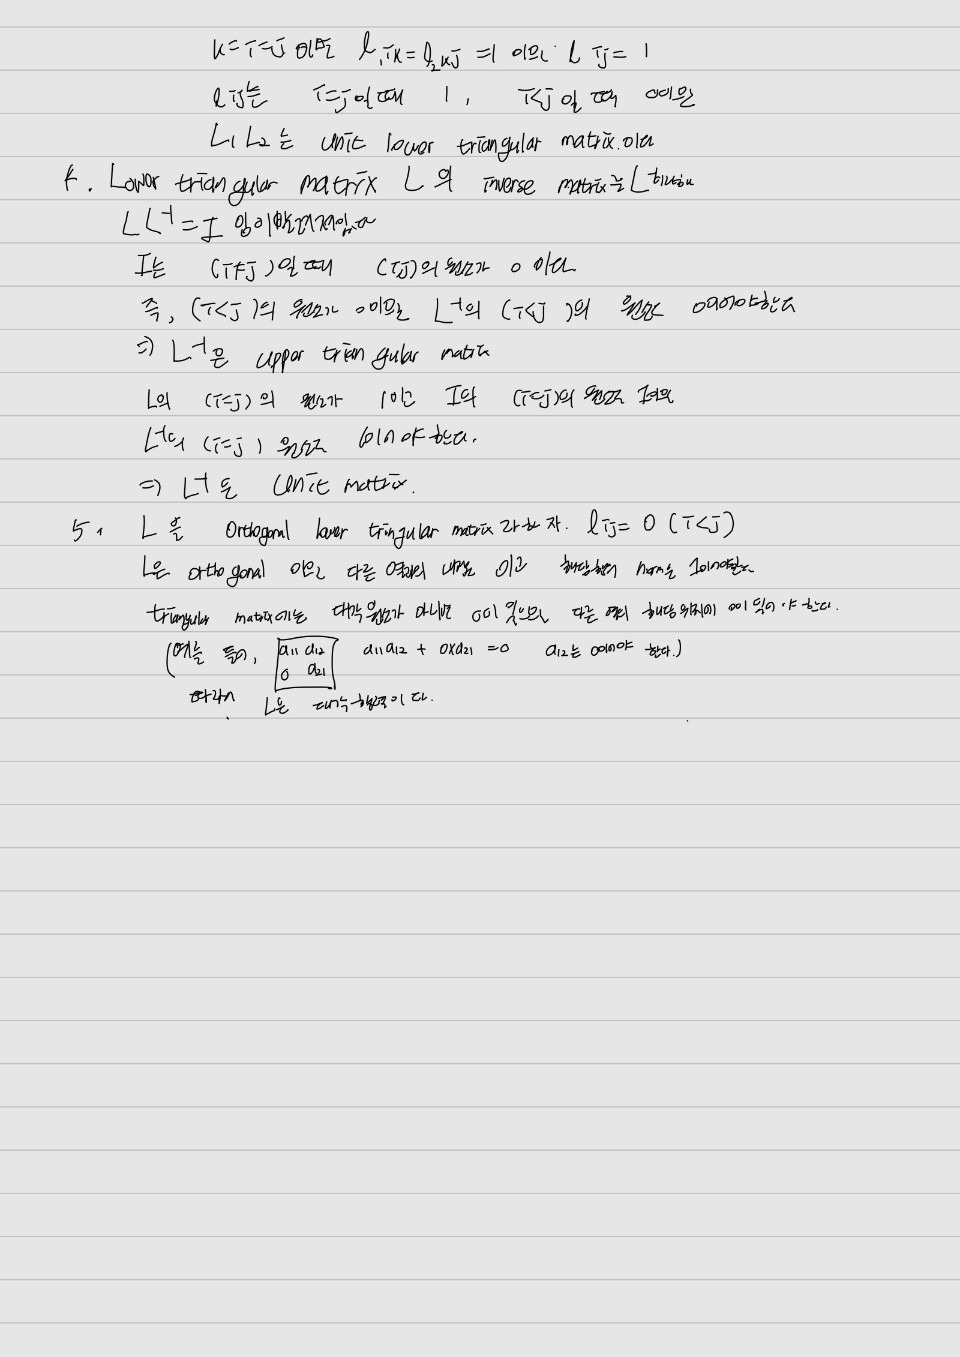 k=i=j 이면 l₁ik=l₂kj =1 이므로 l ij = 1
l ij는 i=j일 때 1, i<j 일 때 0이므로
L₁ L₂ 는 unit lower triangular matrix.이다
4. Lower triangular matrix L 의 inverse matrix는 L⁻¹
LL⁻¹=I
I는 (i≠j)일 때 (ij)의 원소가 0 이다.
즉, (i<j)의 원소가 0이므로 L⁻¹의 (i<j)의 원소는 0이어야한다
⇒ L⁻¹은 upper triangular matrix
L의 (i=j)의 원소가 1이고 I의 (i=j)의 원소도
L⁻¹의 (i=j) 원소도 1이어야 한다.
⇒ L⁻¹은 unit matrix.
5. L 을 orthogonal lower tringular matrix 라 하 자. l ij = 0 (i<j)
L은 orthogonal 이므로 다른 열과의 내적은 0이고 해당열의 norm은 1이어야한다
triangular matrix에는 대각원소가 아니면 0이 있으므로 다른 열의 해당 위치에 0이 있어 야 한다.
(예를 들어, a11 a12 0 a21 a11a12 + 0xa21 =0 a12는 0이어야 한다.)
따라서 L은 대각행렬이 다.